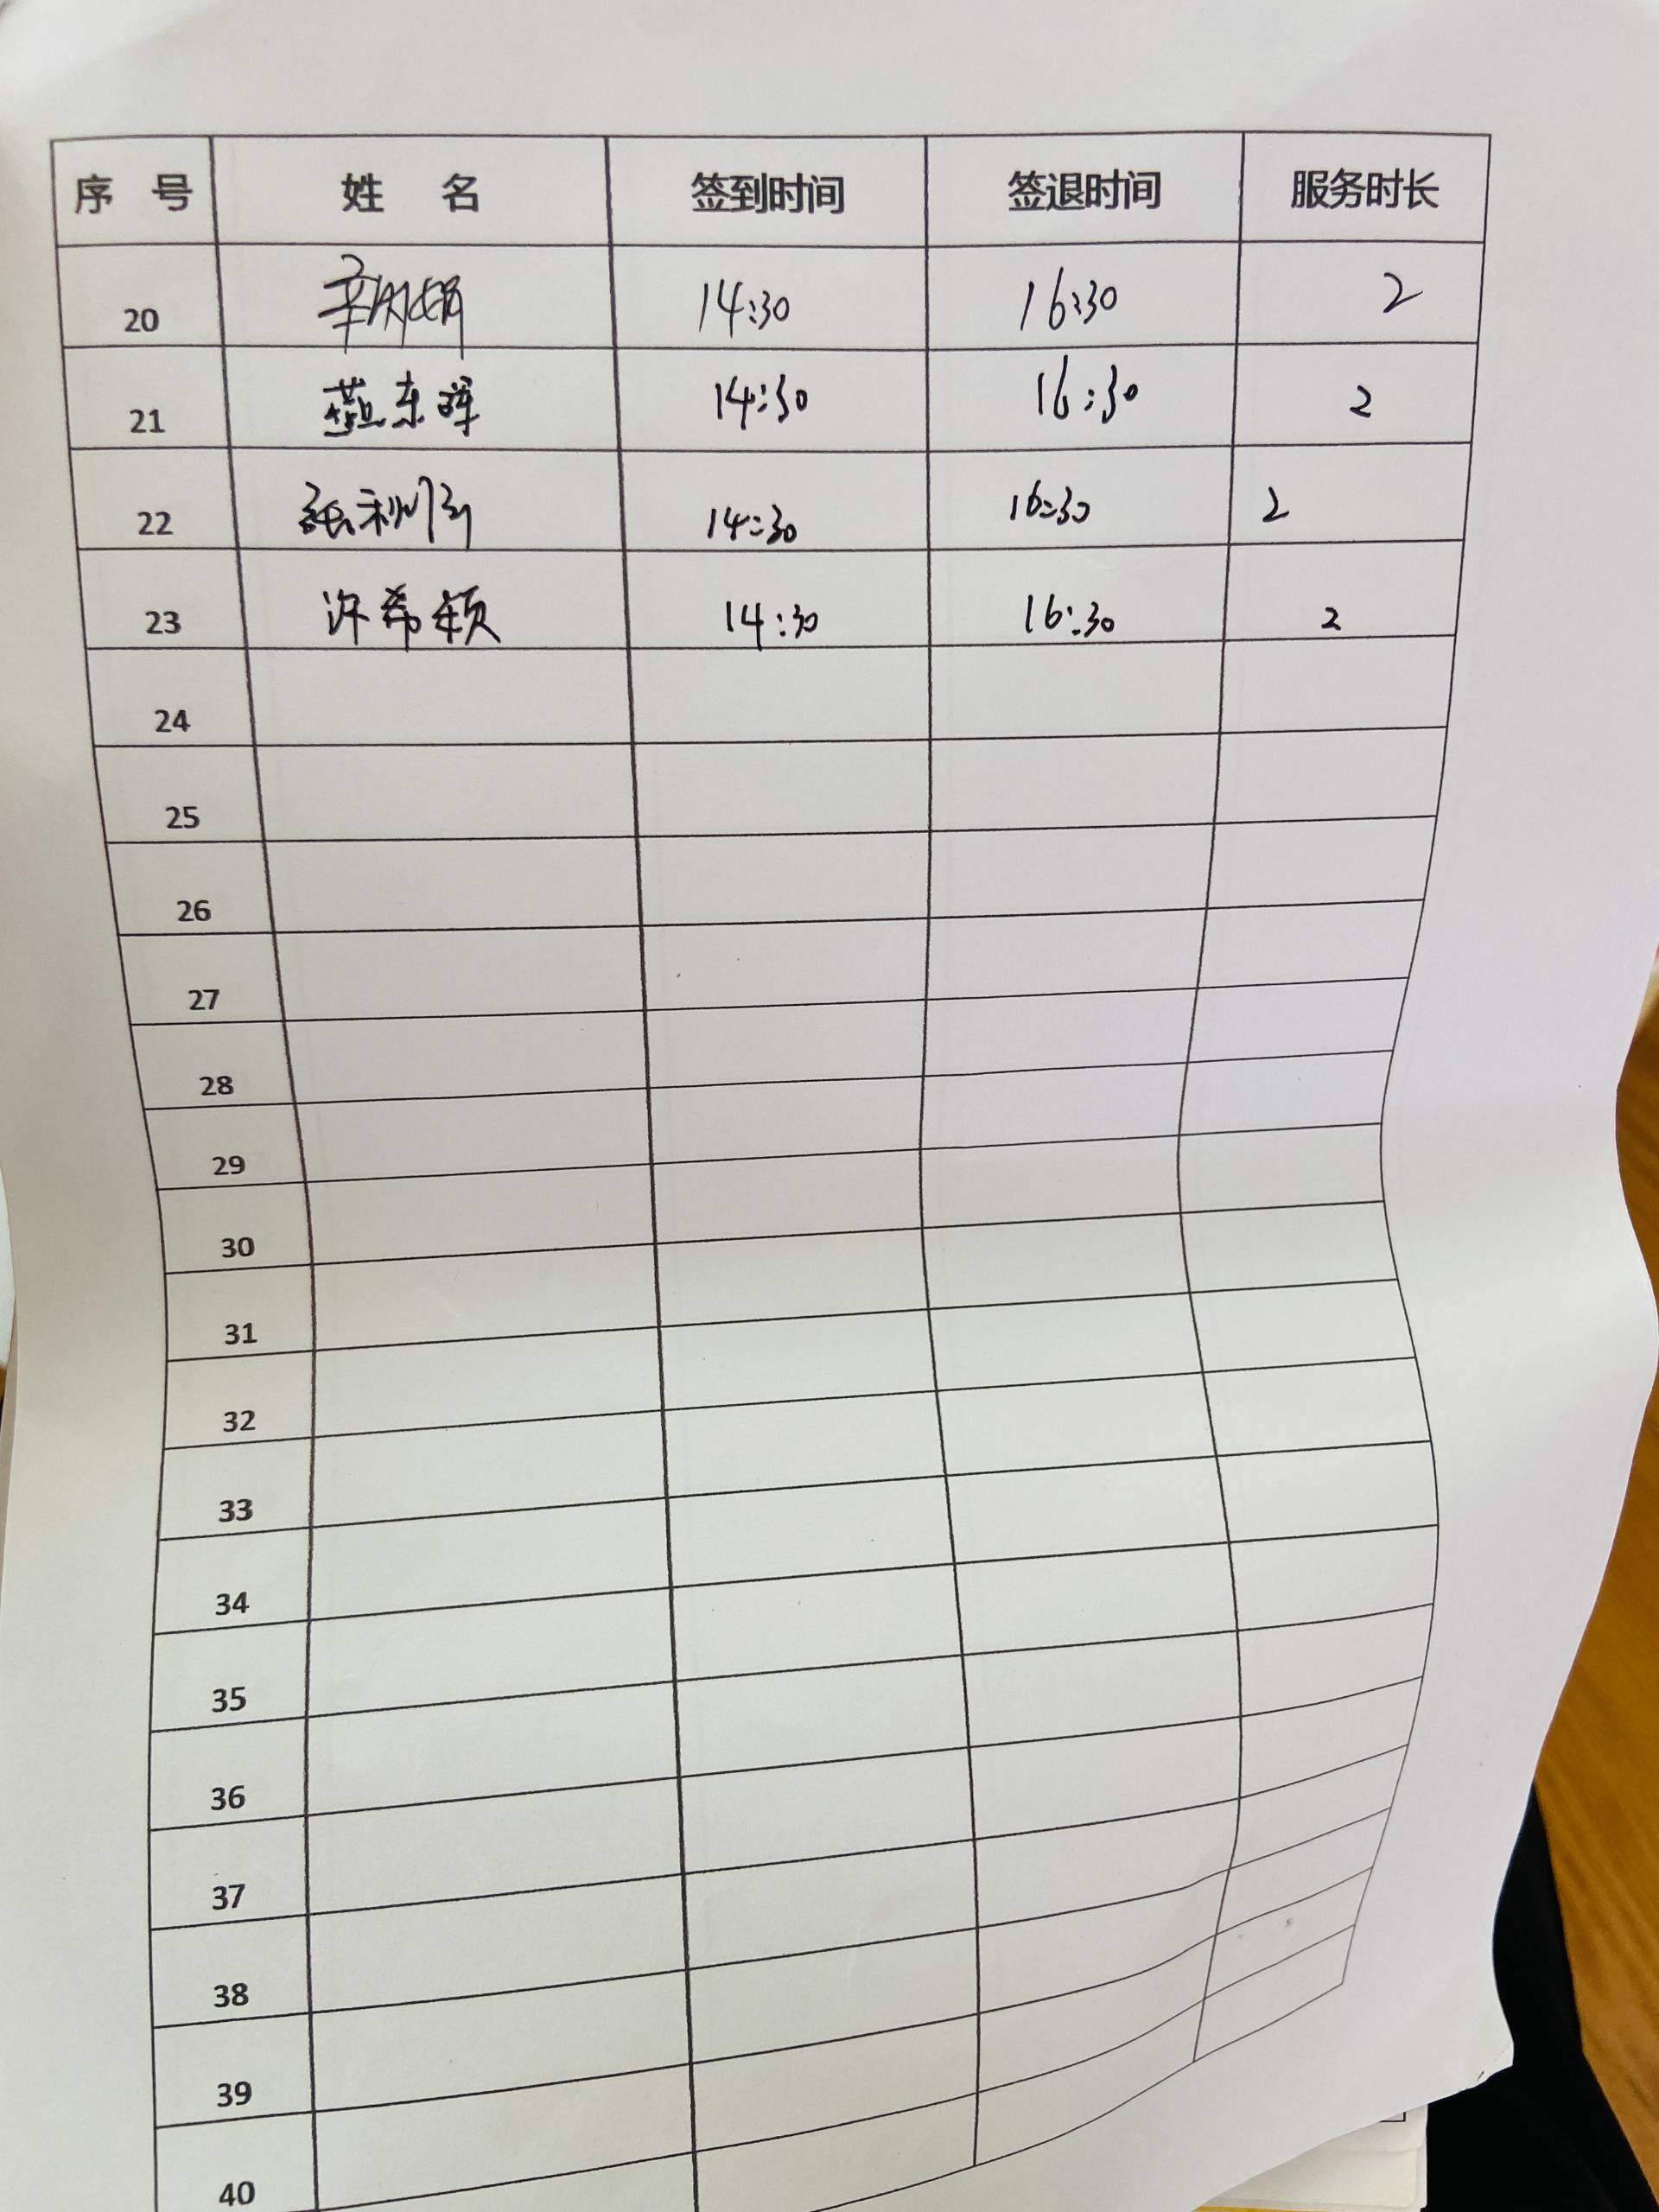 序 号 姓 名 签到时间 签退时间 服务时长
20 14:30 16:30 2
21 蓝东晖 14:30 16:30 2
22 张利 14:30 16:30 2
23 许希颖 14:30 16:30 2
24
25
26
27
28
29
30
31
32
33
34
35
36
37
38
39
40